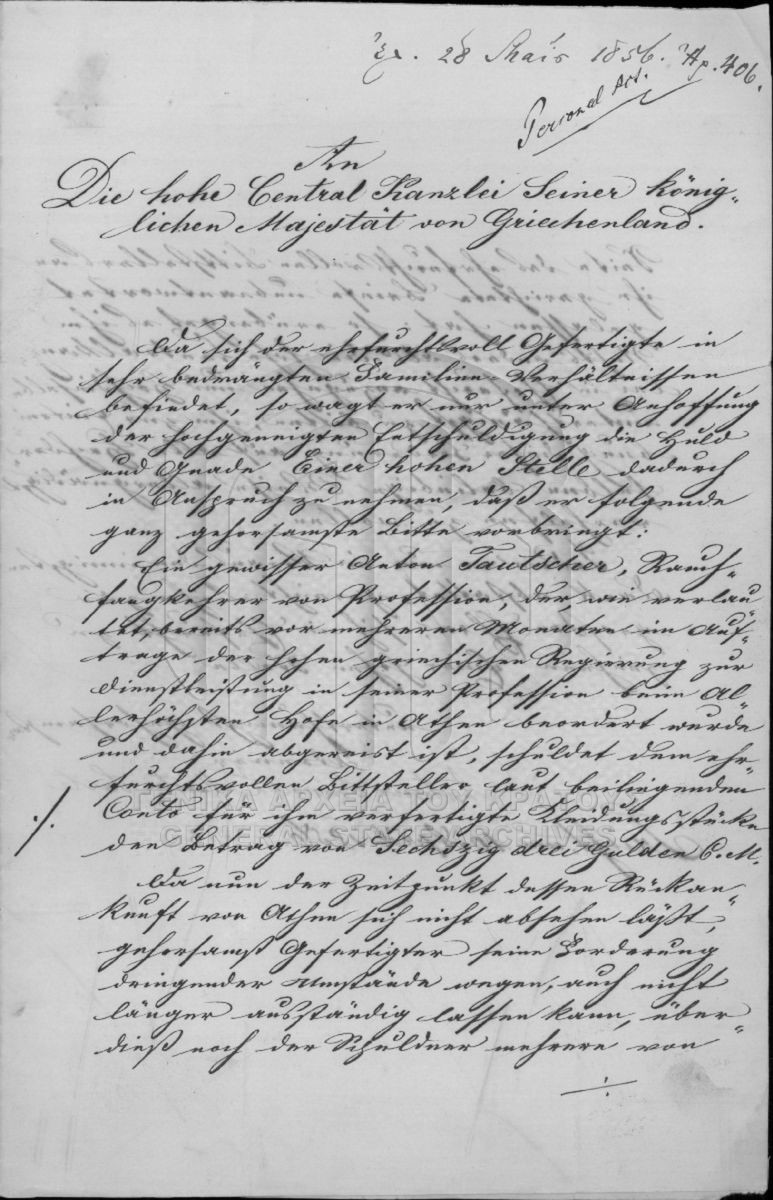 Ἐλ. 28 Μαΐς 1856. Ἀρ. 406.
Personal Act.
An
Die hohe Central Kanzlei Seiner könig„
lichen Majestät von Griechenland.
Da sich der ehrfurchtsvoll Gefertigte in
sehr bedrängten Familien Verhältnissen
befindet, so wagt er nur unter Anhoffung
der hochgeneigten Entschuldigung die Huld
und Gnade Einer hohen Stelle dadurch
in Anspruch zu nehmen, daß er folgende
ganz gehorsamste Bitte vorbringt:
Ein gewisser Anton Tautscher, Rauch„
fangkehrer von Profession, der, wie verlau„
tet, bereits vor mehreren Monaten im Auf„
trage der hohen griechischen Regierung zur
Dienstleistung in seiner Profession beim Al„
lerhöchsten Hofe in Athen beordert wurde
und dahin abgereist ist, schuldet dem ehr„
furchtsvollen Bittsteller laut beiliegenden
./. Conto für ihm verfertigte Kleidungsstücke
den Betrag von Sechszig drei Gulden C. M.
Da nun der Zeitpunkt dessen Rückan„
kunft von Athen sich nicht absehen läßt,
gehorsamst Gefertigter seine Forderung
dringender Umstände wegen, auch nicht
länger ausständig lassen kann, über„
dieß noch der Schuldner mehrere von„
./.
ΓΕΝΙΚΑ ΑΡΧΕΙΑ ΤΟΥ ΚΡΑΤΟΥΣ
GENERAL STATE ARCHIVES